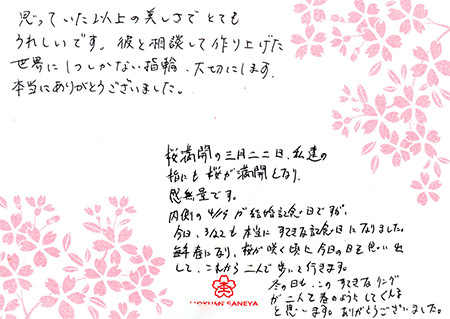 思っていた以上の美しさでとても
うれしいです。彼と相談して作り上げた
世界に1つしかない指輪、大切にします。
本当にありがとうございました。
桜満開の三月二二日、私達の
指にも桜が満開しなり、
感無量です。
内側の4/9が結婚記念日ですが、
今日、3/22も本当にすてきな記念日になりました。
毎年春になり、桜が咲く頃に今日の日を思い出
して、これから二人で歩いて行きます。
冬の日も、このすてきなリング
が二人を春のようにしてくれる
と思います。ありがとうございました。